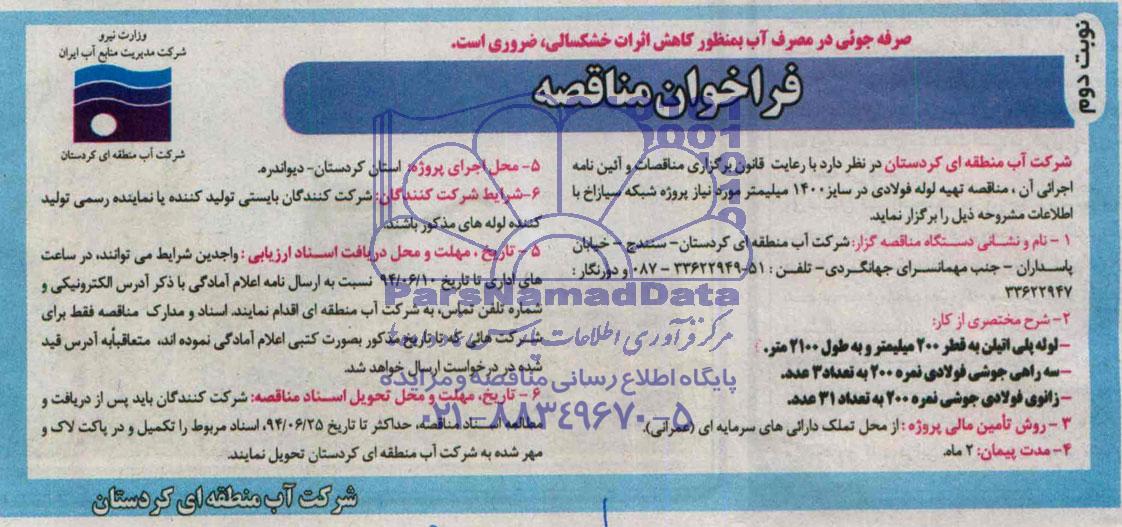 نوبت دوم
صرفه جوئی در مصرف آب بمنظور کاهش اثرات خشکسالی، ضروری است.
فراخوان مناقصه
وزارت نیرو
شرکت مدیریت منابع آب ایران
شرکت آب منطقه ای کردستان
شرکت آب منطقه ای کردستان در نظر دارد با رعایت قانون برگزاری مناقصات و آئین نامه
اجرائی آن ، مناقصه تهیه لوله فولادی در سایز ۱۴۰۰ میلیمتر مورد نیاز پروژه شبکه سیازاخ با
اطلاعات مشروحه ذیل را برگزار نماید.
۱- نام و نشانی دستگاه مناقصه گزار: شرکت آب منطقه ای کردستان- سنندج - خیابان
پاسداران - جنب مهمانسرای جهانگردی- تلفن : ۵۱-۳۳۶۲۲۹۴۹ - ۰۸۷ و دورنگار :
۳۳۶۲۲۹۴۷
۲- شرح مختصری از کار:
- لوله پلی اتیلن به قطر ۲۰۰ میلیمتر و به طول ۲۱۰۰ متر.
- سه راهی جوشی فولادی نمره ۲۰۰ به تعداد ۳ عدد.
- زانوی فولادی جوشی نمره ۲۰۰ به تعداد ۳۱ عدد.
۳- روش تأمین مالی پروژه : از محل تملک دارائی های سرمایه ای (عمرانی).
۴- مدت پیمان: ۲ ماه.
۵- محل اجرای پروژه: استان کردستان- دیواندره.
۶-شرایط شرکت کنندگان: شرکت کنندگان بایستی تولید کننده یا نماینده رسمی تولید
کننده لوله های مذکور باشند.
۵- تاریخ ، مهلت و محل دریافت اسناد ارزیابی : واجدین شرایط می توانند، در ساعت
های اداری تا تاریخ ۹۴/۰۶/۱۰ نسبت به ارسال نامه اعلام آمادگی با ذکر آدرس الکترونیکی و
شماره تلفن تماس، به شرکت آب منطقه ای اقدام نمایند. اسناد و مدارک مناقصه فقط برای
شرکت هائی که تا تاریخ مذکور بصورت کتبی اعلام آمادگی نموده اند، متعاقباًبه آدرس قید
شده در درخواست ارسال خواهد شد.
۶- تاریخ، مهلت و محل تحویل اسناد مناقصه: شرکت کنندگان باید پس از دریافت و
مطالعه اسناد مناقصه، حداکثر تا تاریخ ۹۴/۰۶/۲۵، اسناد مربوط را تکمیل و در پاکت لاک و
مهر شده به شرکت آب منطقه ای کردستان تحویل نمایند.
شرکت آب منطقه ای کردستان
ParsNamadData
مرکز فرآوری اطلاعات پارس نماد داده ها
پایگاه اطلاع رسانی مناقصه و مزایده
۰۲۱-۸۸۳۴۹۶۷۰-۵